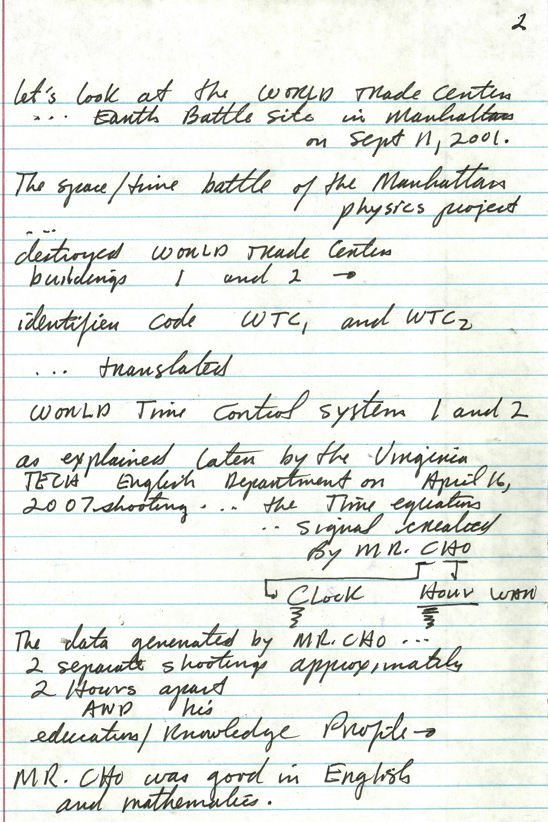 2
let's look at the WORLD Trade Center
... Earth Battle Site in Manhattan
on Sept 11, 2001.
The space/time battle of the Manhattan
physics project
...
destroyed WORLD Trade Center
buildings 1 and 2 →
identifier code WTC1 and WTC2
... translated
WORLD Time Control system 1 and 2
as explained later by the Virginia
TECH English Department on April 16,
2007 shooting ... the Time equation
.. signal created
By MR. CHO
Clock Hour WAR
The data generated by MR. CHO ...
2 separate shootings approximately
2 Hours apart
AND his
education/Knowledge Profile →
MR. CHO was good in English
and mathematics.